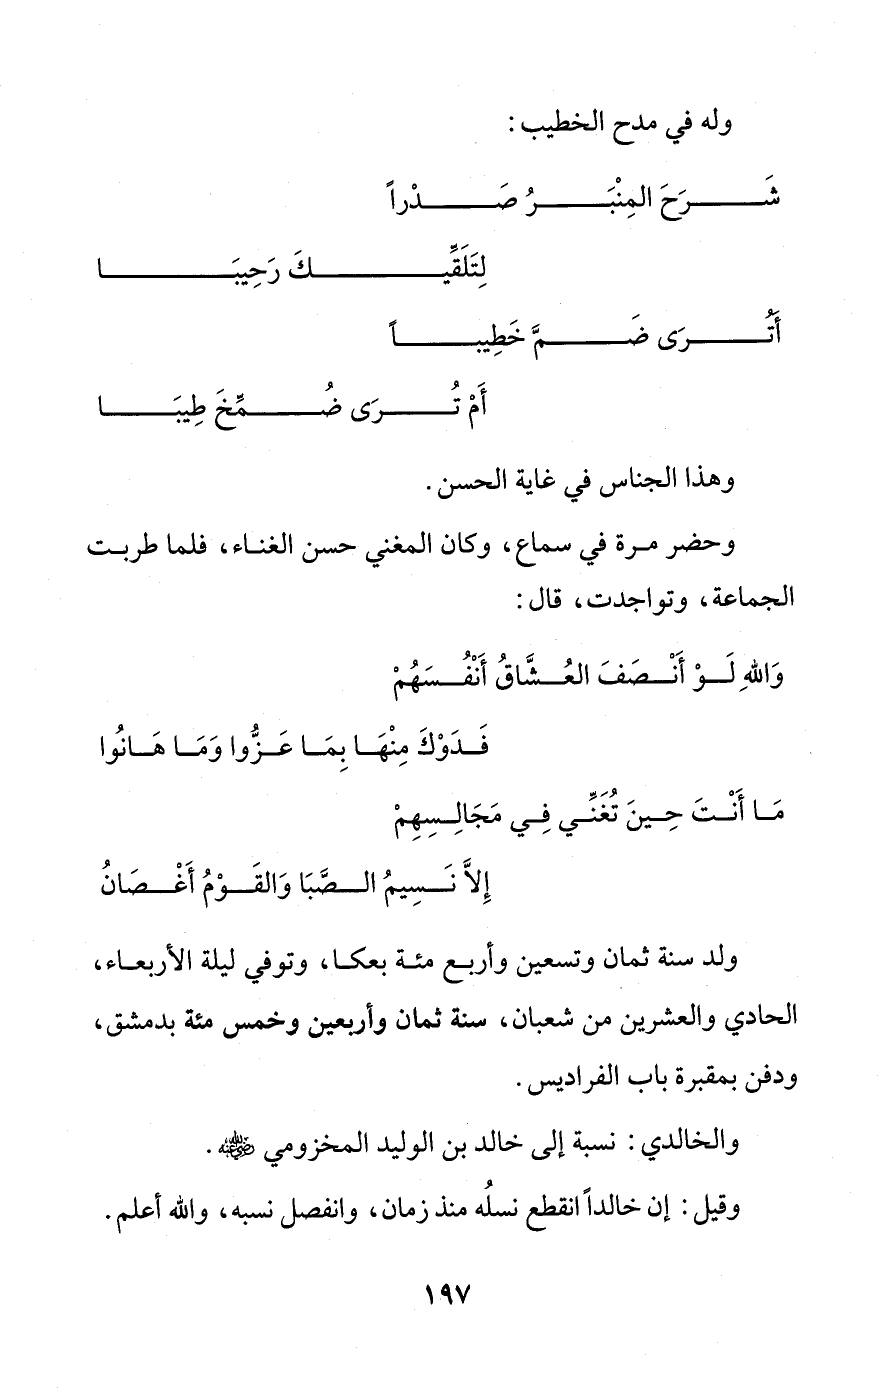 وله في مدح الخطيب:
شَرَحَ المِنْبَرُ صَدْراً
لِتَلَقِّيكَ رَحِيبَا
أَتُرَى ضَمَّ خَطِيباً
أَمْ تُرَى ضُمِّخَ طِيبَا
وهذا الجناس في غاية الحسن.
وحضر مرة في سماع، وكان المغني حسن الغناء، فلما طربت
الجماعة، وتواجدت، قال:
وَاللهِ لَوْ أَنْصَفَ العُشَّاقُ أَنْفُسَهُمْ
فَدَوْكَ مِنْهَا بِمَا عَزُّوا وَمَا هَانُوا
مَا أَنْتَ حِينَ تُغَنِّي فِي مَجَالِسِهِمْ
إِلاَّ نَسِيمُ الصَّبَا وَالقَوْمُ أَغْصَانُ
ولد سنة ثمان وتسعين وأربع مئة بعكا، وتوفي ليلة الأربعاء،
الحادي والعشرين من شعبان، سنة ثمان وأربعين وخمس مئة بدمشق،
ودفن بمقبرة باب الفراديس.
والخالدي: نسبة إلى خالد بن الوليد المخزومي رضي الله عنه.
وقيل: إن خالداً انقطع نسلُه منذ زمان، وانفصل نسبه، والله أعلم.
١٩٧